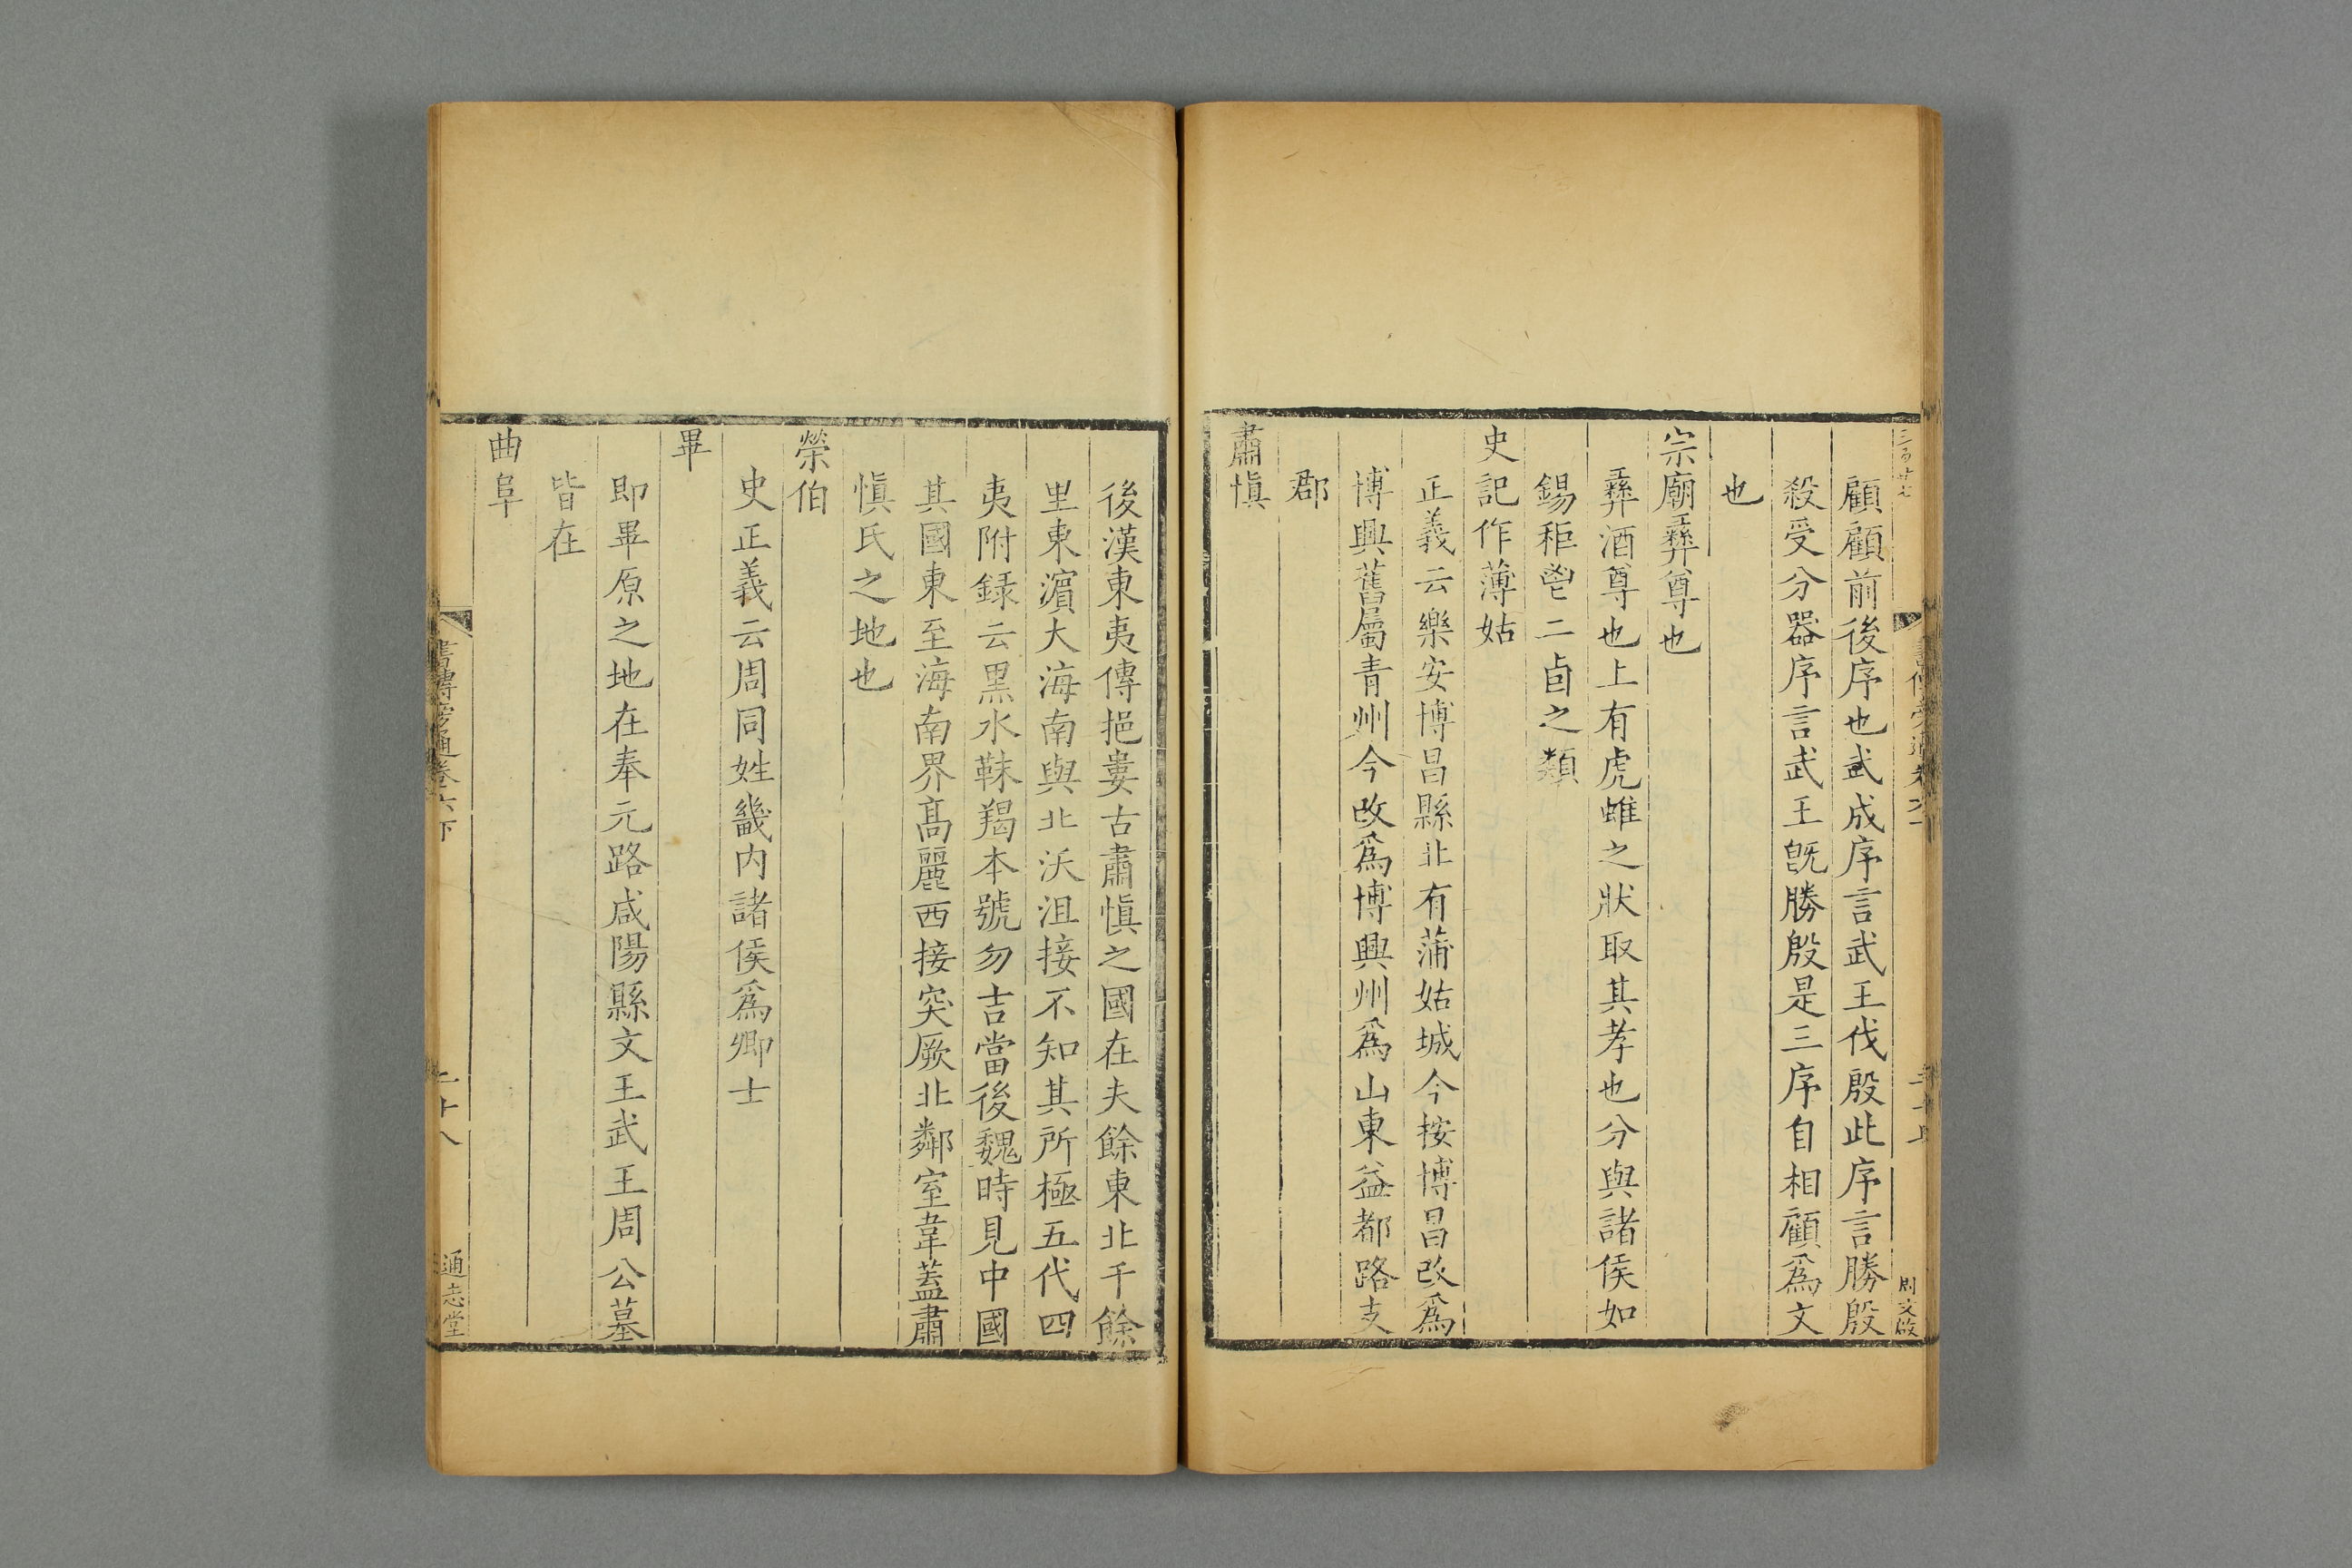 顧顧前後序也武成序言武王伐殷此序言勝殷
殺受分器序言武王旣勝殷是三序自相顧爲文
也
宗廟彝尊也
彝酒尊也上有虎蜼之狀取其孝也分與諸侯如
錫秬鬯二卣之類
史記作薄姑
正義云樂安博昌縣北有蒲姑城今按博昌改爲
博興舊屬青州今改爲博興州爲山東益都路支
郡
肅愼
後漢東夷傳挹婁古肅愼之國在夫餘東北千餘
里東濵大海南與北沃沮接不知其所極五代四
夷附録云黑水靺羯本號勿吉當後魏時見中國
其國東至海南界髙麗西接突厥北鄰室韋蓋肅
愼氏之地也
榮伯
史正義云周同姓畿内諸侯爲卿士
畢
即畢原之地在奉元路咸陽縣文王武王周公墓
皆在
曲阜
書傳旁通卷六下
二十八
通志堂